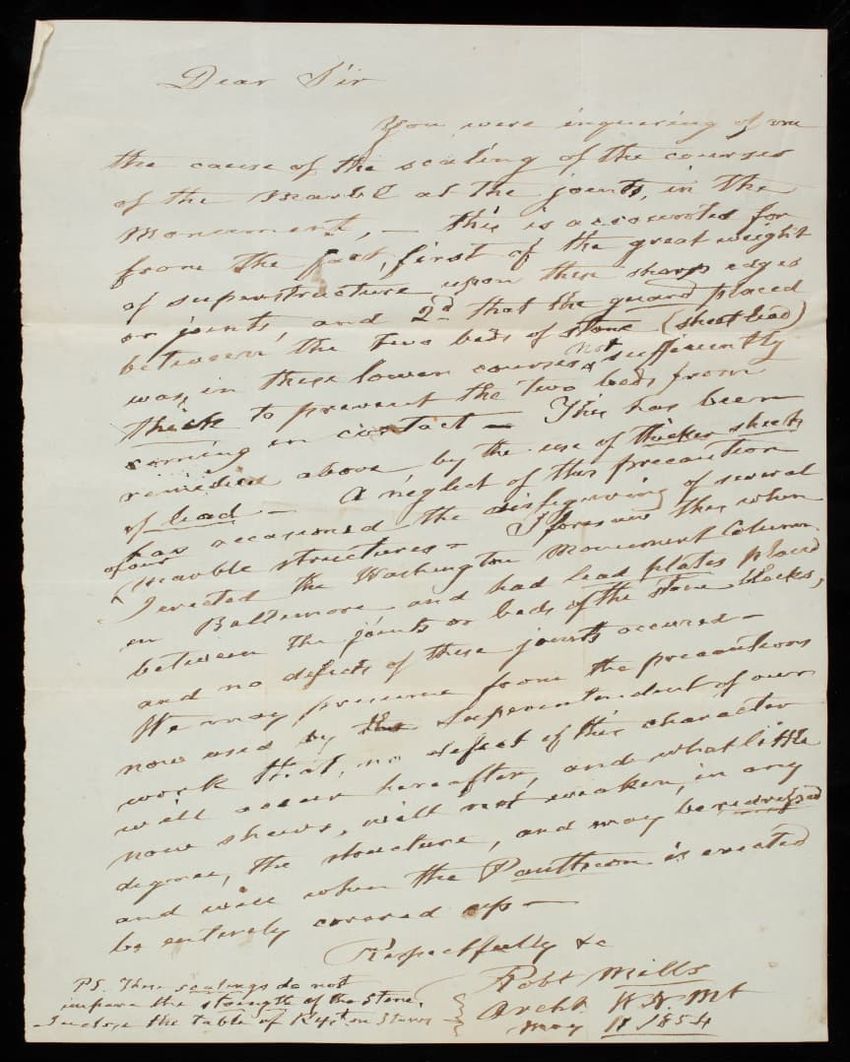 Dear Sir
You were inquiring of me
the cause of the scaling of the courses
of the Marble at the joints, in the
Monument, — this is accounted for
from the fact, first of the great weight
of superstructure upon their sharp edges
or joints, and 2d that the guard placed
between the two beds of stone (sheet lead)
was in these lower courses not sufficiently
thick to prevent the two beds from
coming in contact — This has been
remedied above by the use of thicker sheets
of lead — A neglect of this precaution
has occasioned the disfiguring of several
of our marble structures — I foresaw this when
I erected the Washington Monument Column
in Baltimore and had lead plates placed
between the joints or beds of the stone blocks,
and no defects of these joints occured —
We may presume from the precautions
now used by the Superintendent of our
work that, no defect of this character
will occur hereafter, and what little
now shews, will not weaken, in any
degree, the structure, and may be redressed
and will when the Pantheon is erected
be entirely covered up —
Respectfully &c
Robt Mills
Archt W. N. Mt
May 11 1854
PS. These scalings do not
impare the strength of the Stone.
I inclose the table of Expts on Stones